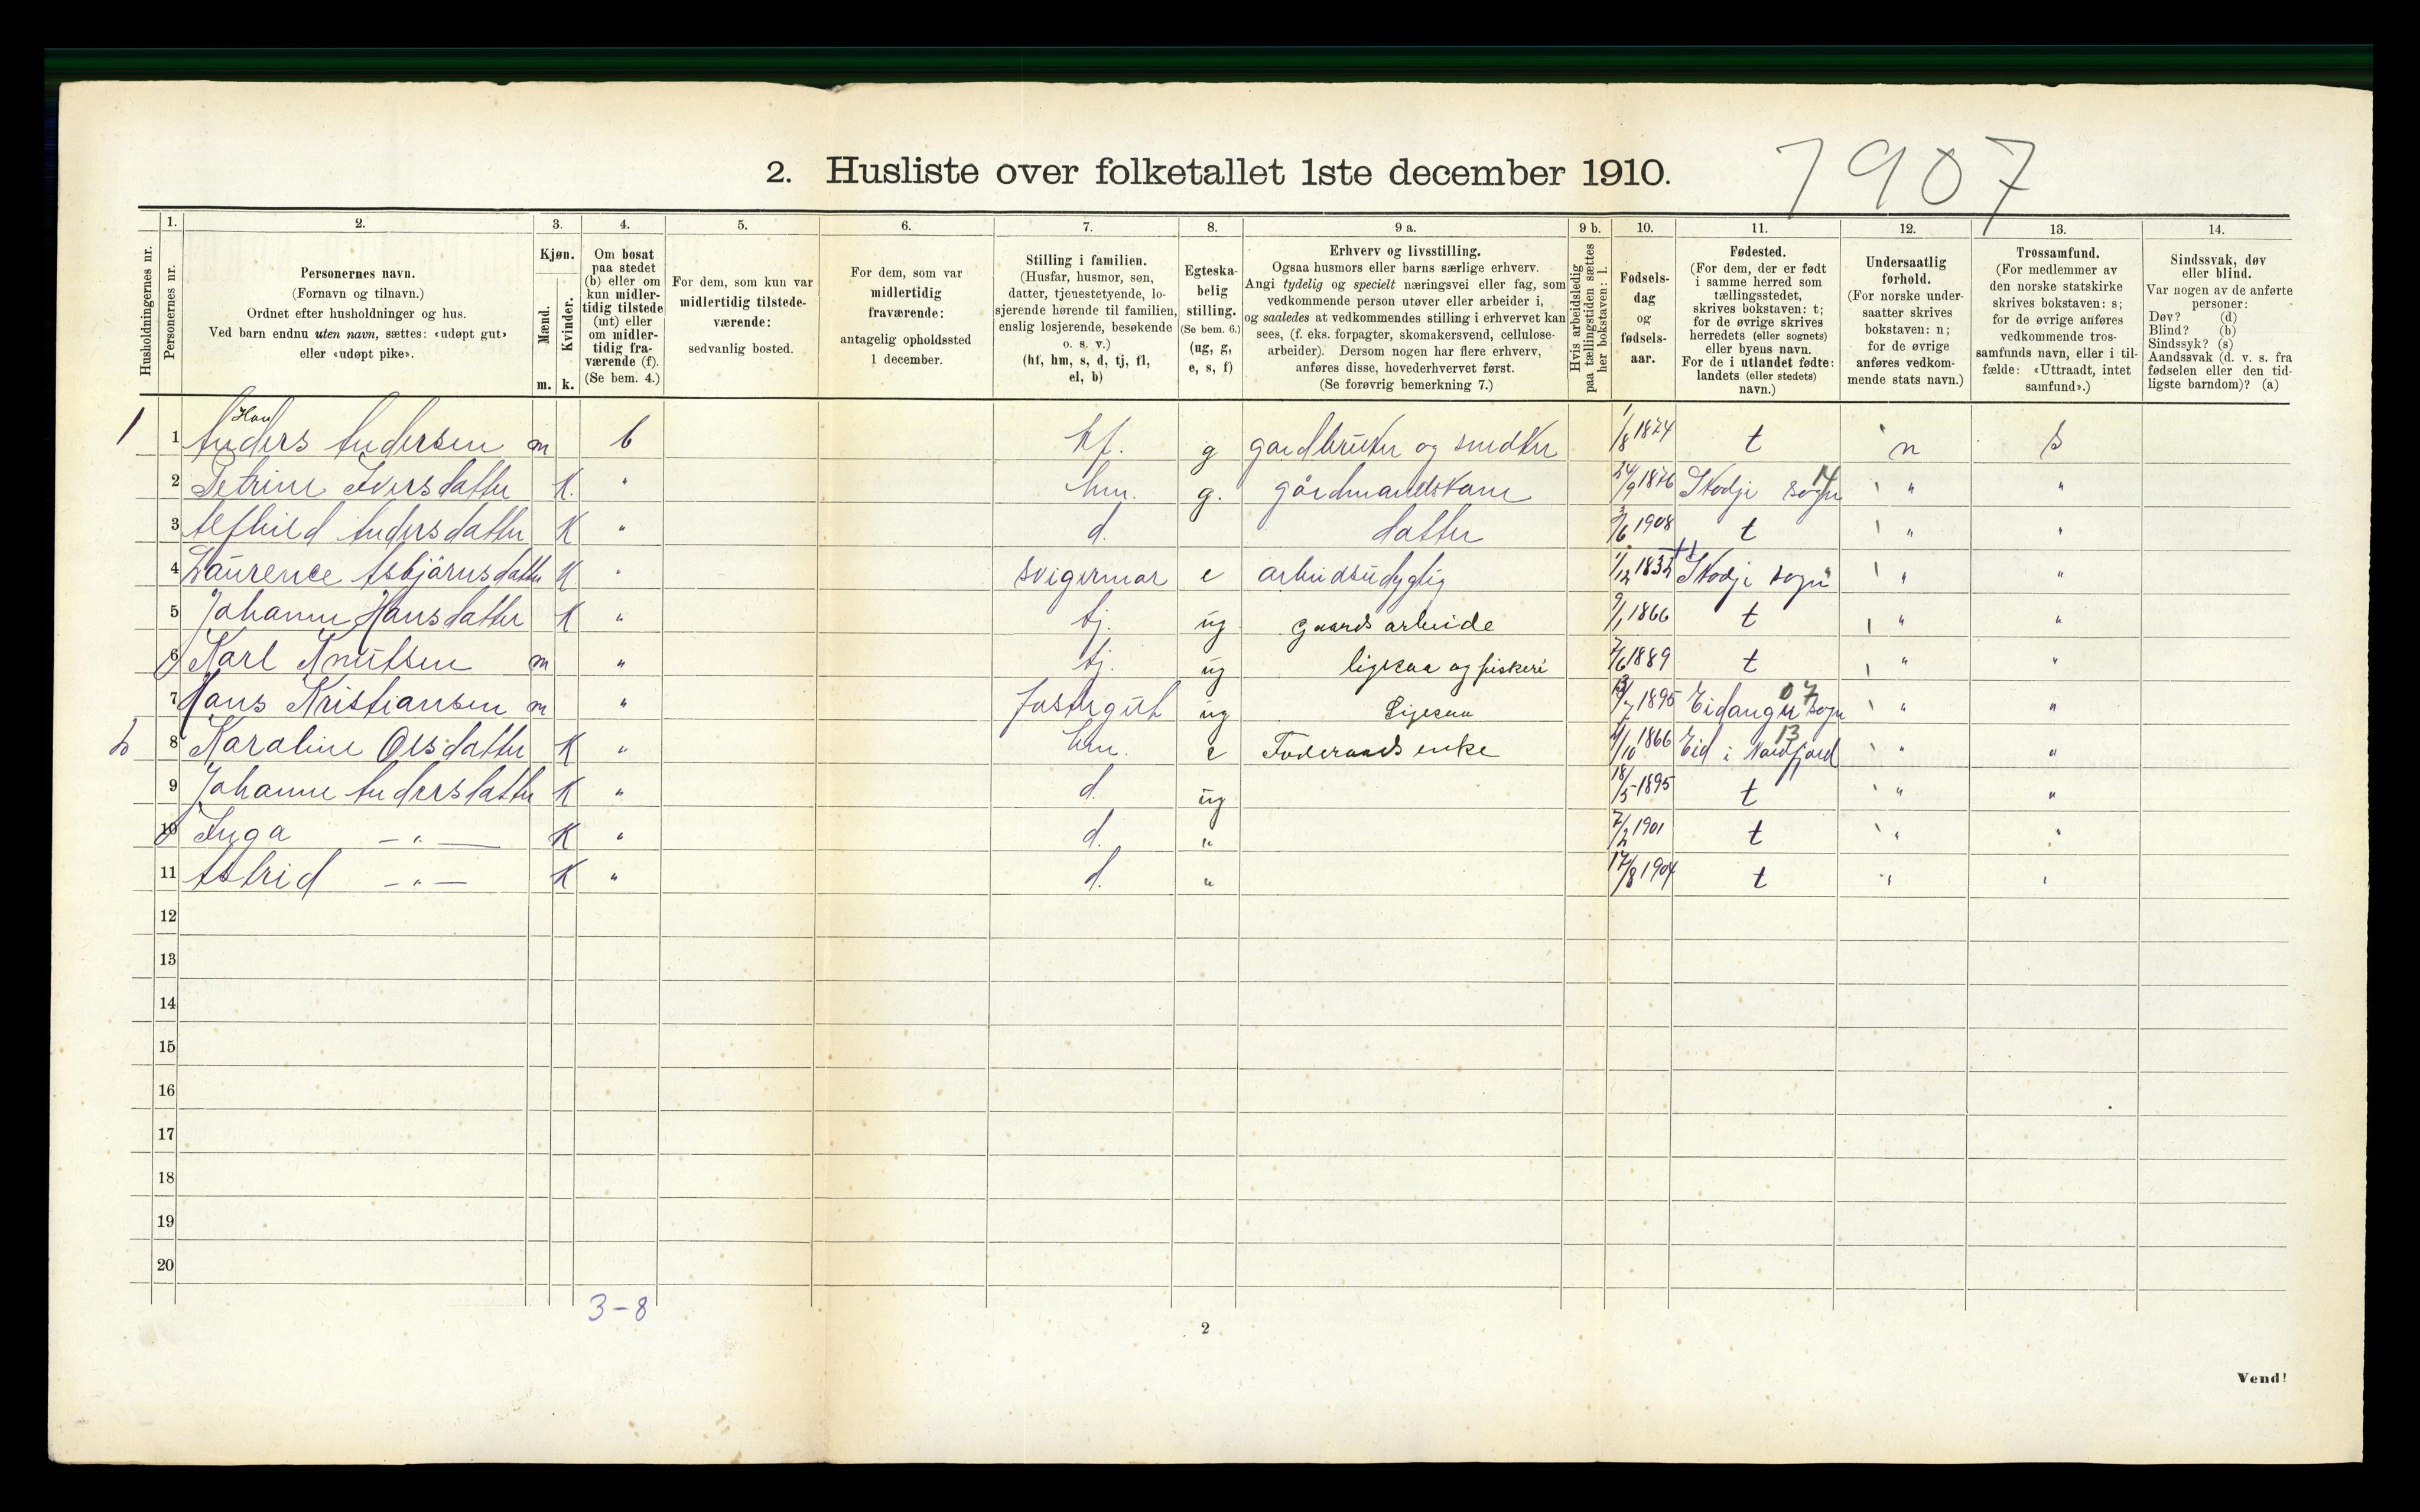 2. Husliste over folketallet 1ste december 1910.
7907
1. 2. 3. 4. 5. 6. 7. 8. 9 a. 9 b. 10. 11. 12. 13. 14.
Husholdningernes nr.
Personernes nr.
Personernes navn.
(Fornavn og tilnavn.)
Ordnet efter husholdninger og hus.
Ved barn endnu uten navn, sættes: «udøpt gut»
eller «udøpt pike».
Kjøn.
Mænd.
Kvinder.
m. k.
Om bosat
paa stedet
(b) eller om
kun midler-
tidig tilstede
(mt) eller
om midler-
tidig fra-
værende (f).
(Se bem. 4.)
For dem, som kun var
midlertidig tilstede-
værende:
sedvanlig bosted.
For dem, som var
midlertidig
fraværende:
antagelig opholdssted
1 december.
Stilling i familien.
(Husfar, husmor, søn,
datter, tjenestetyende, lo-
sjerende hørende til familien,
enslig losjerende, besøkende
o. s. v.)
(hf, hm, s, d, tj, fl,
el, b)
Egteska-
belig
stilling.
(Se bem. 6.)
(ug, g,
e, s, f)
Erhverv og livsstilling.
Ogsaa husmors eller barns særlige erhverv.
Angi tydelig og specielt næringsvei eller fag, som
vedkommende person utøver eller arbeider i,
og saaledes at vedkommendes stilling i erhvervet kan
sees, (f. eks. forpagter, skomakersvend, cellulose-
arbeider). Dersom nogen har flere erhverv,
anføres disse, hovederhvervet først.
(Se forøvrig bemerkning 7.)
Hvis arbeidsledig
paa tællingstiden sættes
her bokstaven: l.
Fødsels-
dag
og
fødsels-
aar.
Fødested.
(For dem, der er født
i samme herred som
tællingsstedet,
skrives bokstaven: t;
for de øvrige skrives
herredets (eller sognets)
eller byens navn.
For de i utlandet fødte:
landets (eller stedets)
navn.)
Undersaatlig
forhold.
(For norske under-
saatter skrives
bokstaven: n;
for de øvrige
anføres vedkom-
mende stats navn.)
Trossamfund.
(For medlemmer av
den norske statskirke
skrives bokstaven: s;
for de øvrige anføres
vedkommende tros-
samfunds navn, eller i til-
fælde: «Uttraadt, intet
samfund».)
Sindssvak, døv
eller blind.
Var nogen av de anførte
personer:
Døv? (d)
Blind? (b)
Sindssyk? (s)
Aandssvak (d. v. s. fra
fødselen eller den tid-
ligste barndom)? (a)
1 1 Anders Andersen m b hf. g gardbruker og snedker 1/8 1874 t n s
2 Petrine Iversdatter K. " hm. g. gårdmandskone 24/9 1876 Skodje sogn 14 " "
3 Alfhild Andersdatter K " d. datter 1908 t " "
4 Laurence Asbjørnsdatter K " svigermor e arbeidsudygtig 1/12 1832 Skodje sogn " "
5 Johanne Hansdatter K " tj. ug gaards arbeide 9/1 1866 t " "
6 Karl Knutsen m " tj. ug ligesaa og fiskeri 7/6 1889 t " "
7 Hans Kristiansen m " fostergut ug Ligesaa 1895 Eidanger sogn 07 " "
2 8 Karoline Olsdatter K " hm. e Foderaads enke 1866 Eid i Nordfjord 13 " "
9 Johanne Andersdatter K " d. ug 18/5 1895 t " "
10 Inga — " — K " d. " 7/2 1901 t " "
11 Astrid — " — K " d. " 17/8 1904 t " "
12
13
14
15
16
17
18
19
20
3-8
2
Vend!